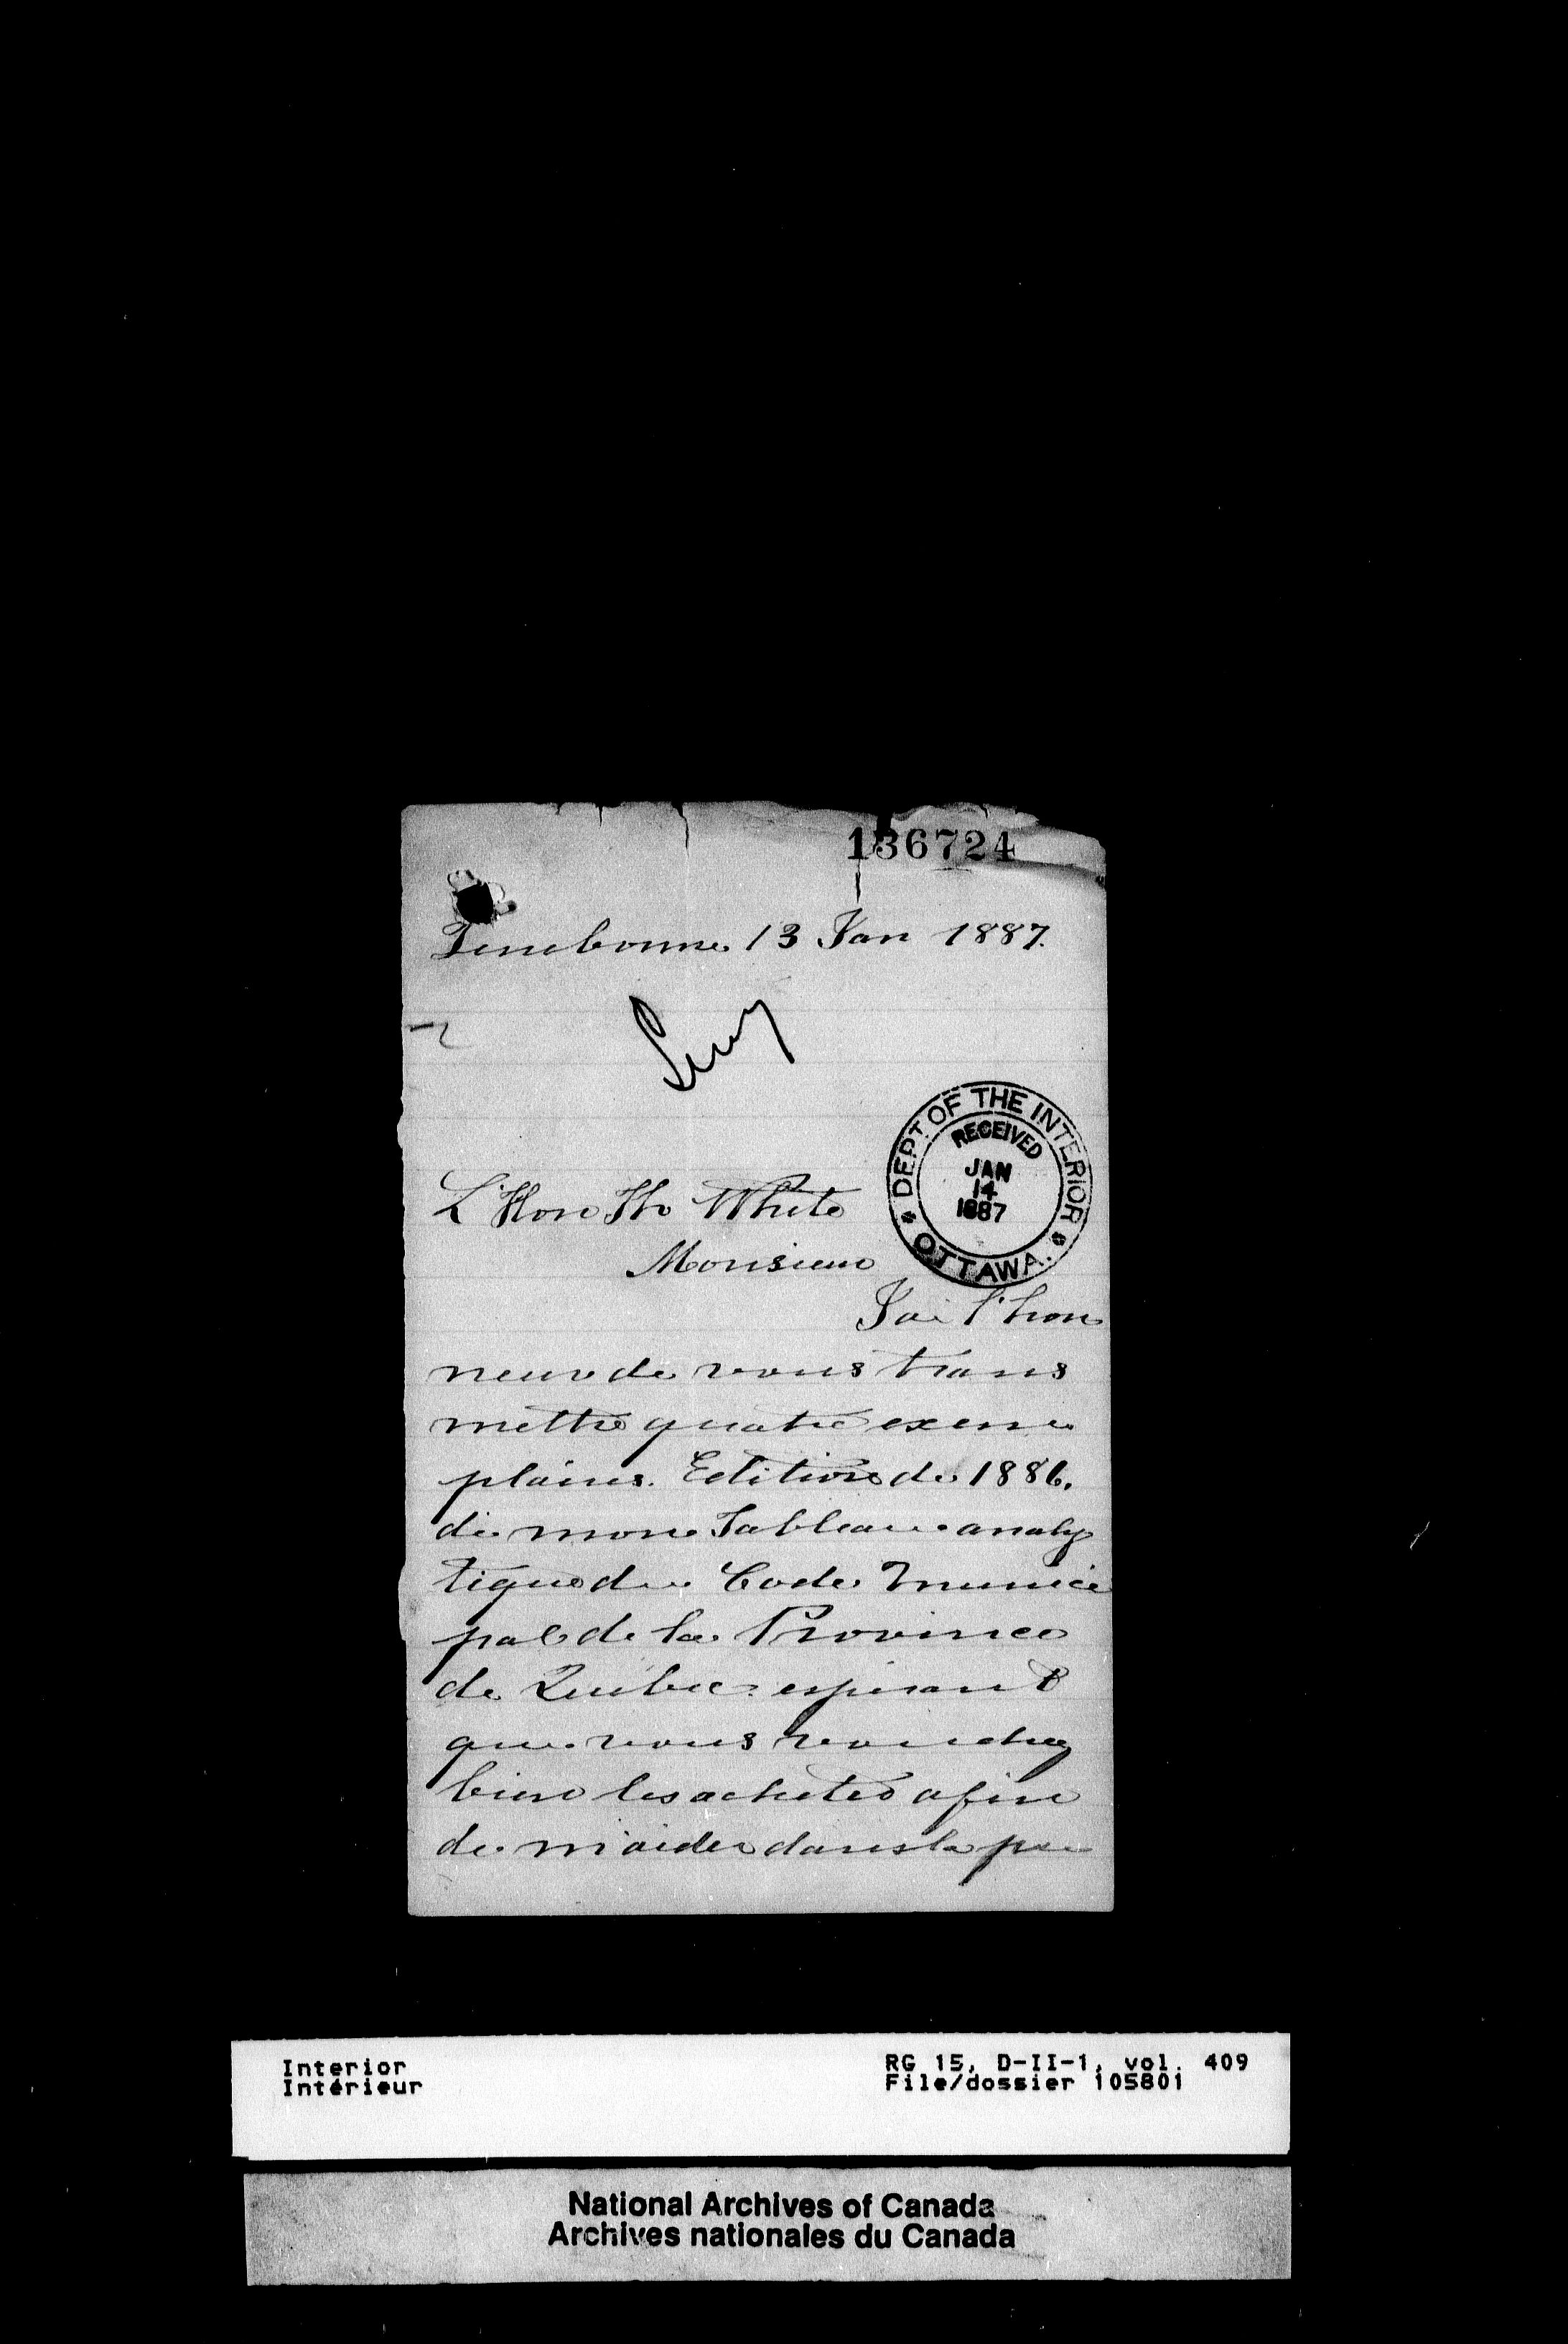 136724
Terrebonne 13 Jan 1887.
L'Hon Th White
Monsieur
J'ai l'hon
neur de vous trans
mettre quatre exem
plaires. Edition de 1886.
de mon Tableau analy
tique du Code Munici
pal de la Province
de Québec espérant
que vous voudrez
bien les acheter afin
de m'aider dans la pu
DEPT. OF THE INTERIOR
RECEIVED
JAN
14
1887
OTTAWA.
Interior
Intérieur
RG 15, D-II-1, vol. 409
File/dossier 105801
National Archives of Canada
Archives nationales du Canada